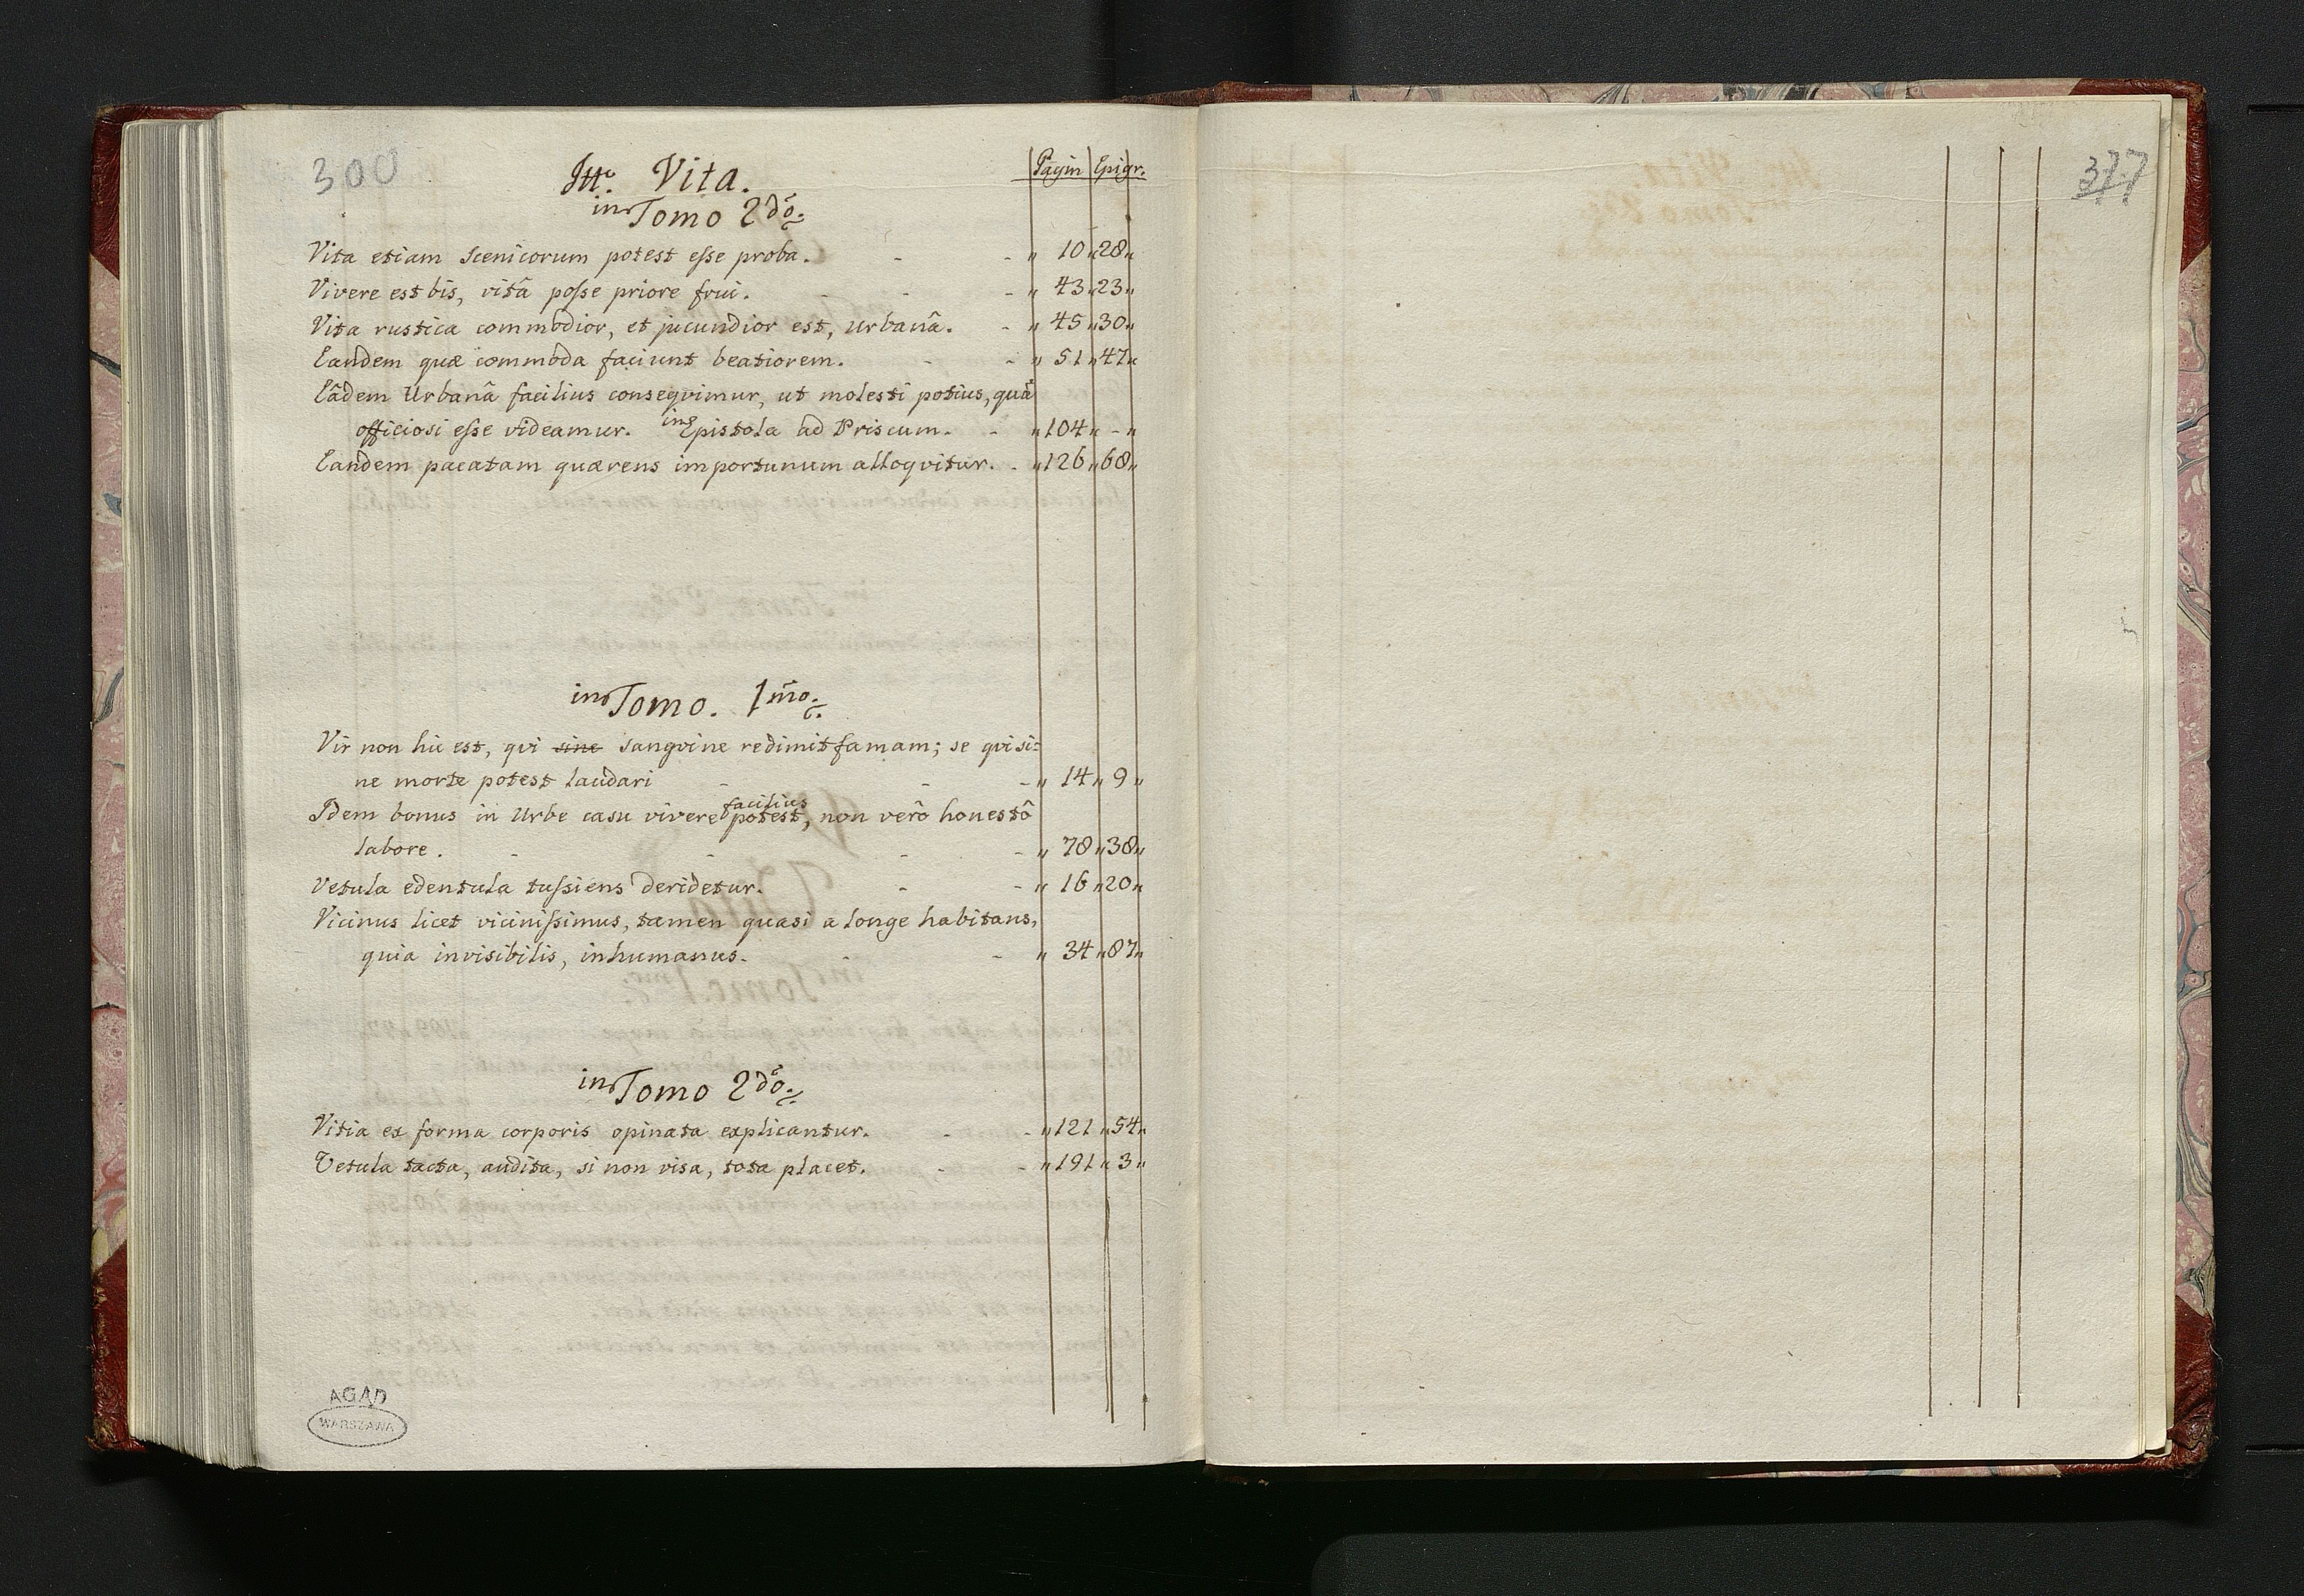 300
Itt. Vita.
Pagin Epigr.
in Tomo 2dô.
Vita etiam scenicorum potest eſse proba. - - " 10 " 28 "
Vivere est bis, vitâ poſse priore frui. - - - " 43 " 23 "
Vita rustica commodior, et jucundior est, Urbanâ. - " 45 " 30 "
Eandem quæ commoda faciunt beatiorem. - - " 51 " 47 "
Eâdem Urbanâ facilius conseqvimur, ut molesti potius, quã
officiosi eſse videamur. in Epistola ad Priscum. - " 104 " - "
Eandem pacatam quærens importunum alloqvitur. - " 126 " 68 "
in Tomo. 1mo.
Vir non hic est, qvi sine sangvine redimit famam; se qvi si=
ne morte potest laudari - - - " 14 " 9 "
facilius
Idem bonus in Urbe casu vivere potest, non verô honestô
labore. - - - - " 78 " 38 "
Vetula edentula tuſsiens deridetur. - - " 16 " 20 "
Vicinus licet viciniſsimus, tamen quasi a longe habitans,
quia invisibilis, inhumanus. - - " 34 " 87 "
in Tomo 2dô.
Vitia ex forma corporis opinata explicantur. - - " 121 " 54 "
Vetula tacta, audita, si non visa, tota placet. - - " 191 " 3 "
AGAD
WARSZAWA
377